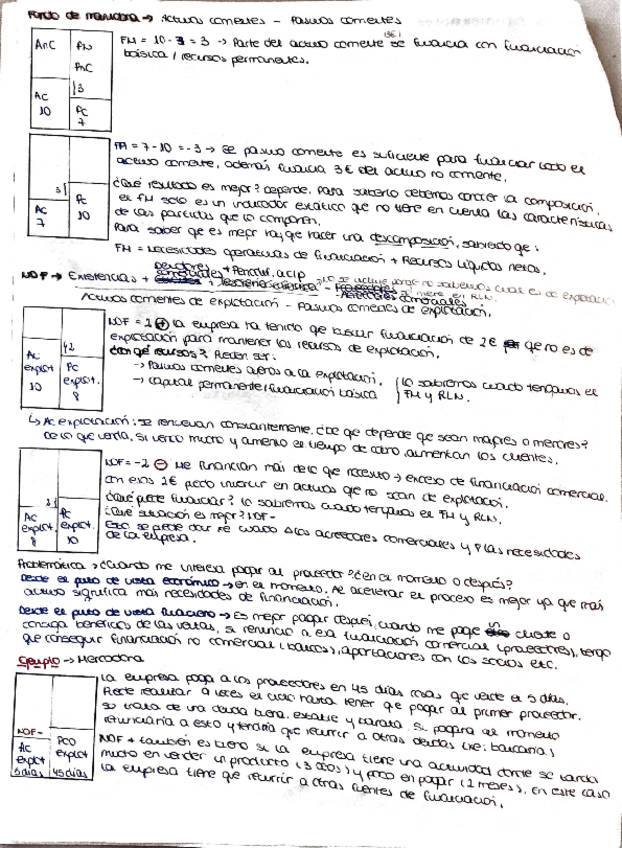 Fondo de maniobra → Activos corrientes - Pasivos corrientes
AnC
PN
PnC
AC
10
}3
PC
7
FM = 10 - 7 = 3 → Parte del activo corriente (3€) se financia con financiación
básica / recursos permanentes.
3{
AC
7
PC
10
FM = 7 - 10 = -3 → El pasivo corriente es suficiente para financiar todo el
activo corriente, además financia 3€ del activo no corriente.
¿Qué resultado es mejor? depende. Para saberlo debemos conocer la composición,
el FM solo es un indicador estático que no tiene en cuenta las características
de las partidas que lo componen.
Para saber que es mejor hay que hacer una descomposición, sabiendo que:
FM = Necesidades operativas de financiación + Recursos líquidos netos.
NOF → Existencias + deudores comerciales + Periodif. a c/p - Acreedores comerciales
Activos corrientes de explotación - Pasivos corrientes de explotación.
AC
explot
10
}2
PC
explot.
8
NOF = 2 ⊕ la empresa ha tenido que buscar financiación de 2€ que no es de
explotación para mantener los recursos de explotación.
¿Con qué recursos? Pueden ser:
→ Pasivos corrientes ajenos a la explotación.
→ Capital permanente / financiación básica
} lo sabremos cuando tengamos el
FM y RLN.
↳ AC explotación: se renuevan constantemente. ¿De que depende que sean mayores o menores?
De lo que venda, si vendo mucho y aumento el tiempo de cobro aumentan los clientes.
AC
explot.
8
PC
explot.
10
NOF = -2 ⊖ Me financian más de lo que necesito → exceso de financiación comercial.
Con esos 2€ puedo invertir en activos que no sean de explotación.
¿Qué puede financiar? lo sabremos cuando tengamos el FM y RLN.
¿Qué situación es mejor? NOF -
Esto se puede dar cuando los acreedores comerciales y las necesidades
de la empresa.
Problemática → ¿Cuándo me interesa pagar al proveedor? ¿en el momento o después?
Desde el punto de vista económico → en el momento. Al acelerar el proceso es mejor ya que más
activo significa más necesidades de financiación.
Desde el punto de vista financiero → Es mejor pagar después, cuando me pague un cliente o
consiga beneficios de las ventas, si renuncio a esa financiación comercial (proveedores), tengo
que conseguir financiación no comercial (bancos), aportaciones con los socios etc.
Ejemplo → Mercadona
NOF -
AC
explot
5 días
PCO
explot
45 días
La empresa paga a los proveedores en 45 días cosas que vende en 5 días.
Puede realizar 9 veces el ciclo hasta tener que pagar al primer proveedor.
se trata de una deuda buena, estable y barata. Si pagara al momento
renunciaría a esto y tendría que recurrir a otras deudas (ej: bancaria)
NOF + también es bueno si la empresa tiene una actividad donde se tarda
mucho en vender un producto (3 años) y poco en pagar (2 meses). En este caso
la empresa tiene que recurrir a otras fuentes de financiación.